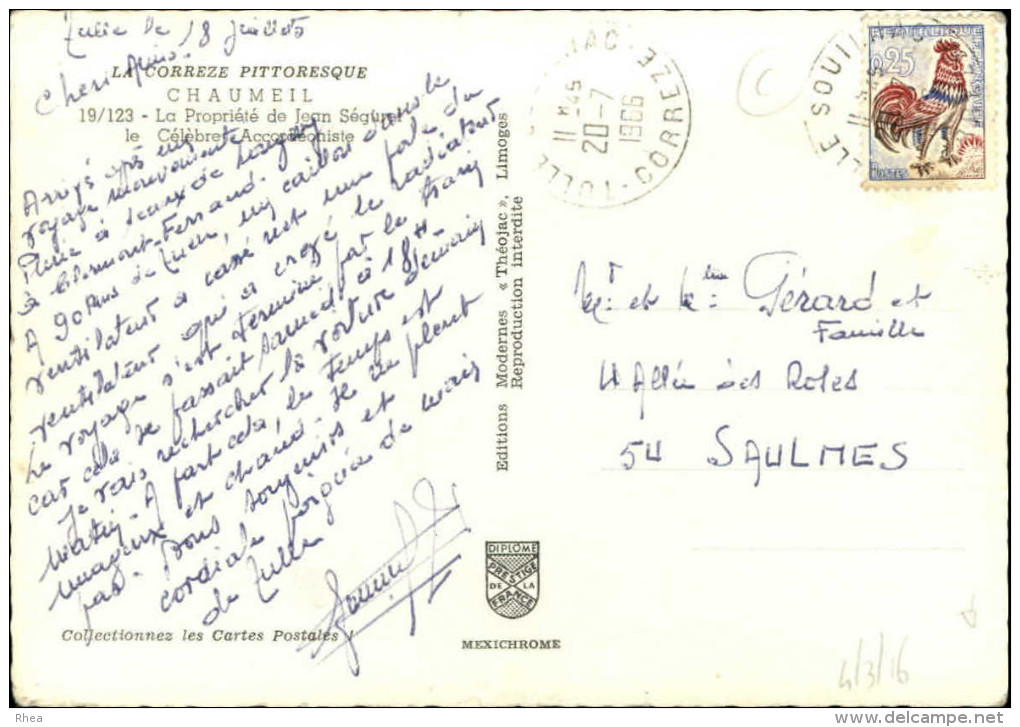 Tulle le 18 Juillet
Chers Amis.
LA CORREZE PITTORESQUE
CHAUMEIL
19/123 - La Propriété de Jean Ségurel
le Célèbre Accordéoniste
Arrivés après un
voyage mouvementé
Pluie à seaux de
à Clermont-Ferrand.
A 90 Kms de un caillou dans le
ventilateur a cassé net une pale du
ventilateur qui a crevé le radiateur
Le voyage s'est terminé par le train
car cela se passait samedi à 18H
Je vais rechercher la voiture demain
matin. A part cela, le temps est
nuageux et chaud. Il ne pleut
pas. Bons souvenirs et
cordiale poignée de mains
de Tulle
Collectionnez les Cartes Postales !
Editions Modernes « Théojac », Limoges
Reproduction interdite
DIPLOME
PRESTIGE
DE LA
FRANCE
MEXICHROME
11 H45
20-7
1966
TULLE SOUILHAC-CORREZE
0,25
POSTES
C
Mr et Mme Gérard et
Famille
4 Allée des Roses
54 SAULNES
4/3/16
Rhea
delcampe.net